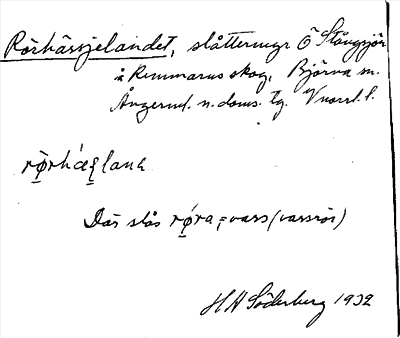 Rörhässjelandet, slåttermyr Ö Stångsjön
å Remmarns skog, Björna sn.
Ångerml. n. doms. tg. Vnorrl. l.
Där slås rǿra = vass (vassrör)
HH Söderberg 1932